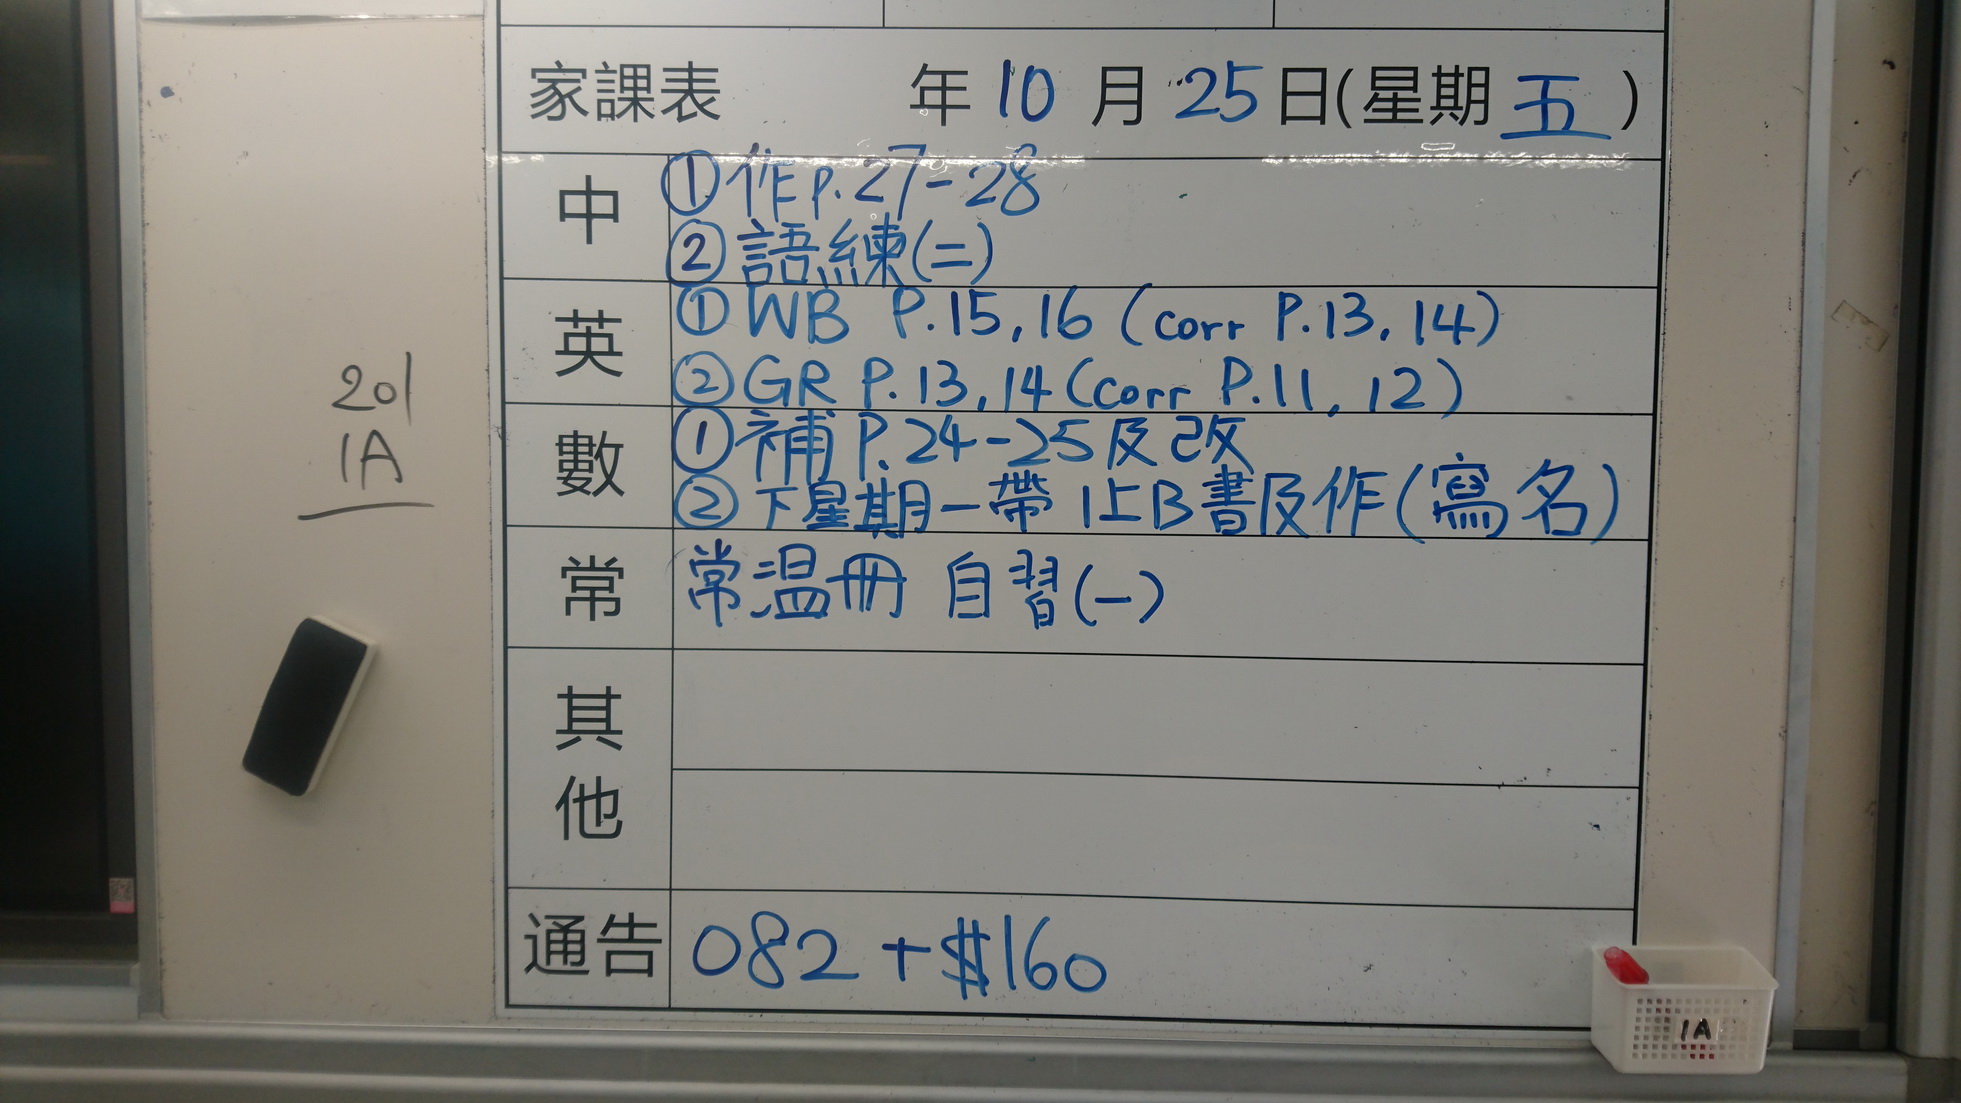 家課表 年 10 月 25 日(星期 五 )
中
①作P.27-28
②語練(二)
英
①WB P.15,16 (corr P.13,14)
②GR P.13,14(corr P.11,12)
數
①補P.24-25及改
②下星期一帶1上B書及作(寫名)
常
常温冊 自習(一)
其他
通告
082+$160
201
1A
1A